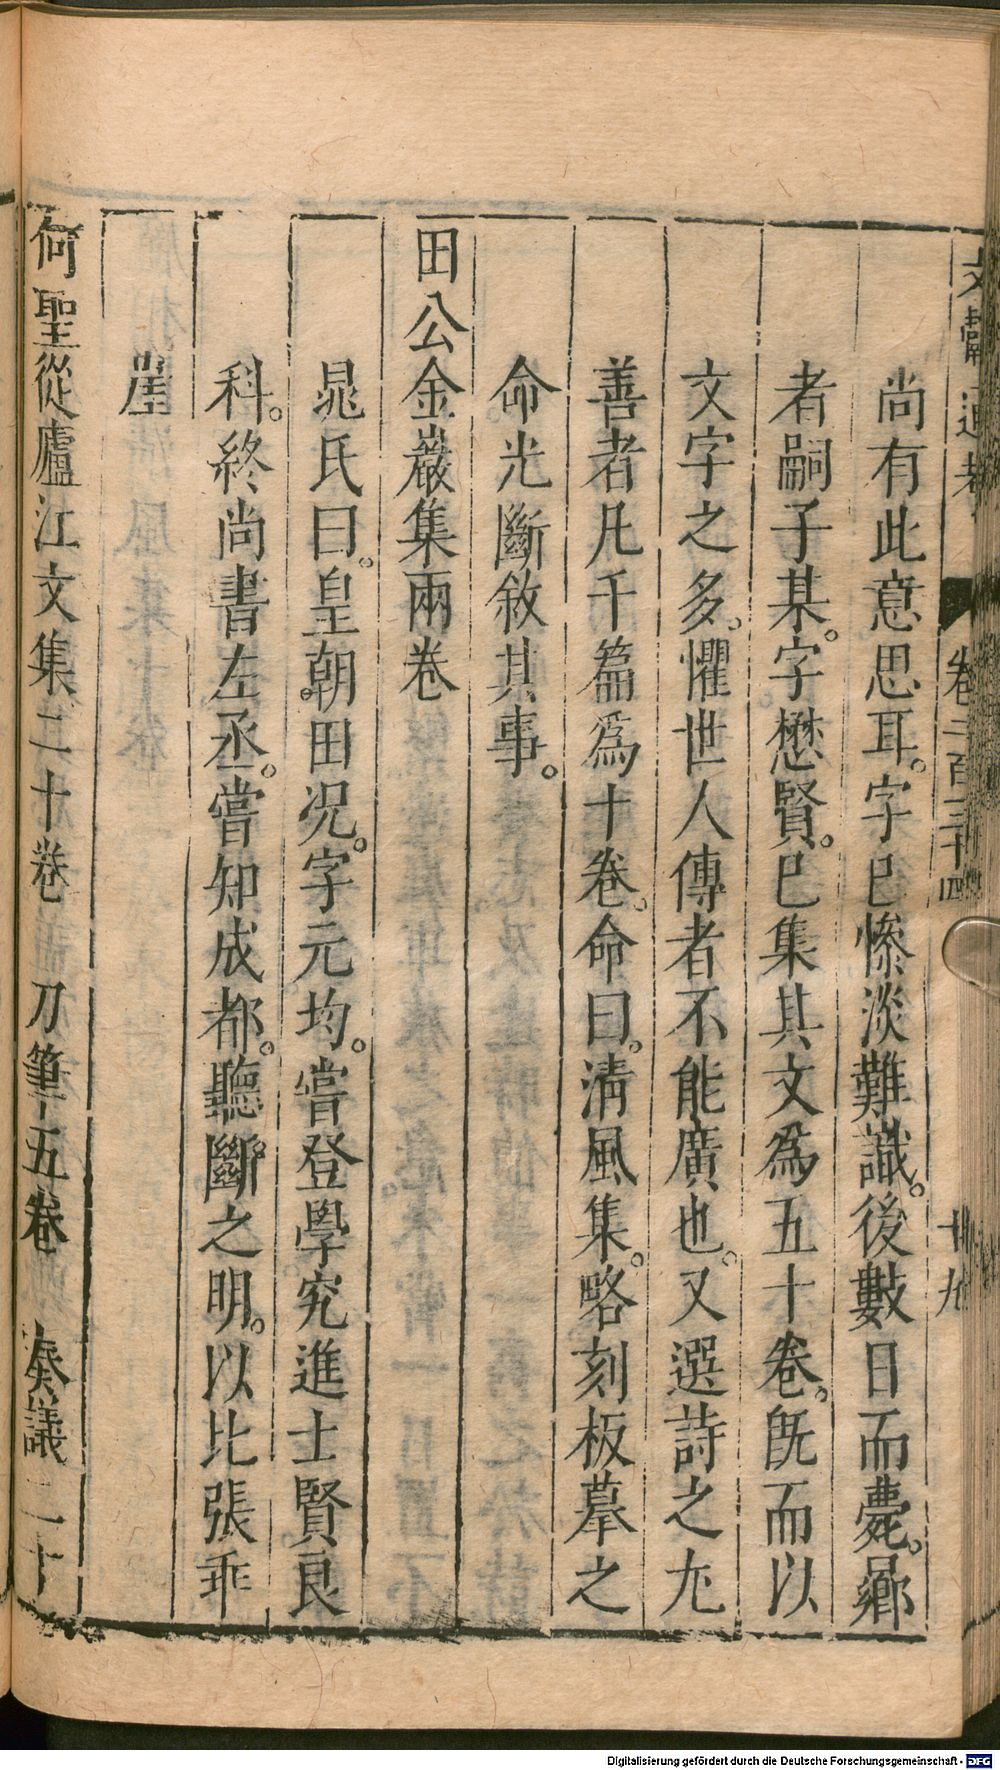 文獻通考 卷二百三十四 十九
尚有此意思耳。字已慘淡難識。後數日而薨。嚮
者嗣子某。字懋賢。已集其文為五十卷。旣而以
文字之多。懼世人傳者不能廣也。又選詩之尢
善者凡千篇爲十卷。命曰。淸風集。略刻板摹之
命光斷敘其事。
田公金巖集兩卷
晁氏曰。皇朝。田况。字元均。嘗登學究進士賢良
科。終尚書左丞。嘗知成都。聽斷之明。以比張乖
崖
何聖從廬江文集二十卷 刀筆五卷 奏議二十
Digitalisierung gefördert durch die Deutsche Forschungsgemeinschaft - DFG